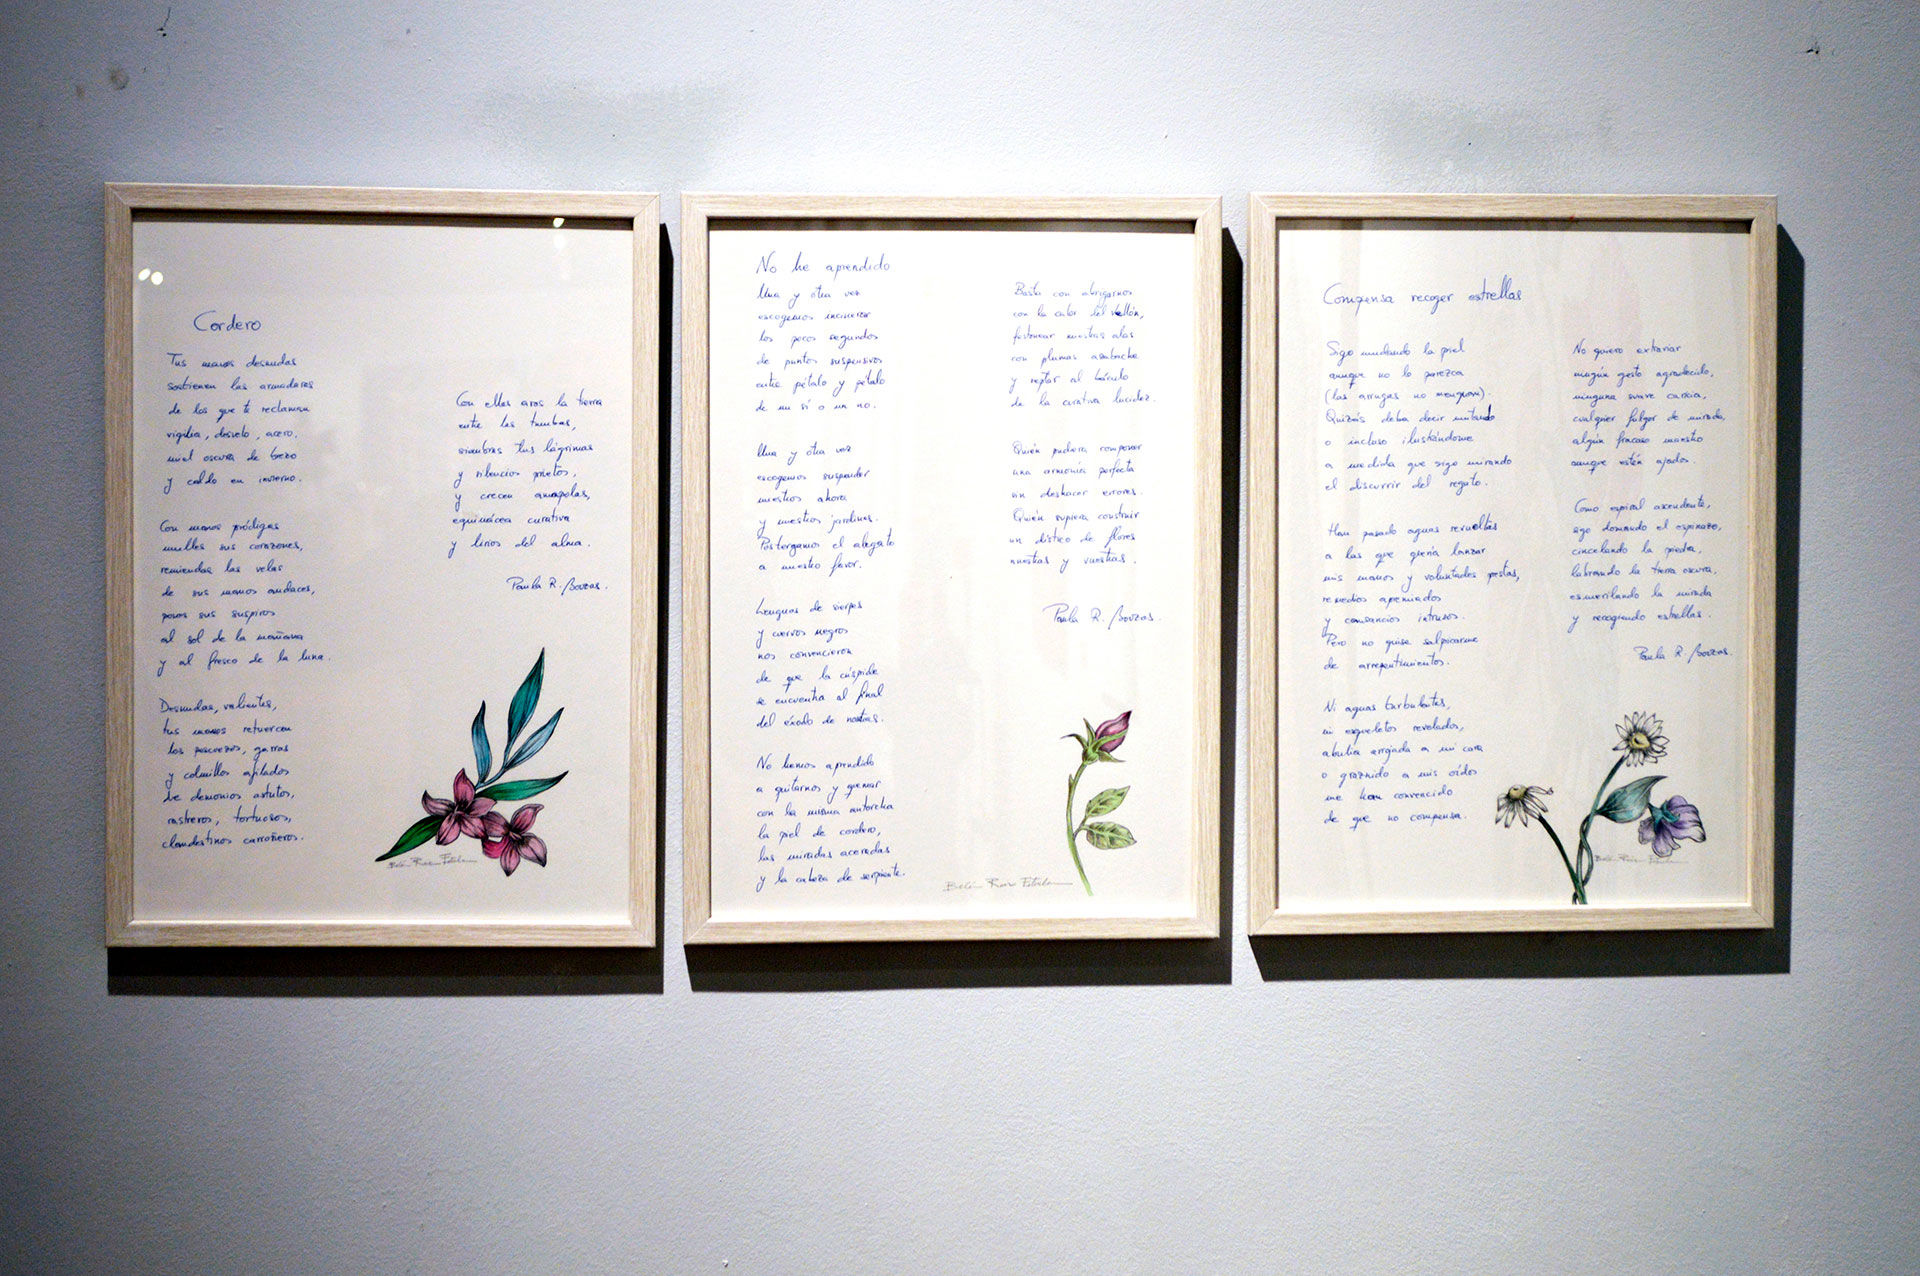 Cordero
Tus manos desnudas
sostienen las armaduras
de los que te reclaman
vigilia, desvelo, acero.
miel oscura de brezo
y caldo en invierno.
Con manos pródigas
mulles sus corazones,
remiendas las velas
de sus manos audaces,
pones sus suspiros
al sol de la mañana
y al fresco de la luna.
Desnudas, valientes,
tus manos retuercen
los pescuezos, garras
y colmillos afilados
de demonios astutos,
rastreros, tortuosos,
clandestinos carroñeros.
Con ellas aras la tierra
entre las tumbas,
siembras tus lágrimas
y silencios prietos,
y crecen amapolas,
equinácea curativa
y lirios del alma.
Paula R. Bouzas.
No he aprendido
Una y otra vez
escogemos incinerar
los pocos segundos
de puntos suspensivos
entre pétalo y pétalo
de un sí o un no.
Una y otra vez
escogemos suspender
nuestros ahora
y nuestros jardines.
Postergamos el alegato
a nuestro favor.
Lenguas de sierpes
y cuervos negros
nos convencieron
de que la cúspide
se encuentra al final
del éxodo de nosotras.
No hemos aprendido
a quitarnos y quemar
con la misma antorcha
la piel de cordero,
las miradas aceradas
y la cabeza de serpiente.
Basta con abrigarnos
con la calor del vellón,
festonear nuestras alas
con plumas azabache
y reptar al báculo
de la curativa lucidez.
Quién pudiera componer
una armonía perfecta
sin deshacer errores.
Quién supiera construir
un dístico de flores
nuestras y vuestras.
Paula R. Bouzas.
Belén Ruiz
Compensa recoger estrellas
Sigo mudando la piel
aunque no lo parezca
(las arrugas no menguan).
Quizás deba decir mutando
o incluso ilustrándome
a medida que sigo mirando
el discurrir del regato.
Han pasado aguas revueltas
a las que quería lanzar
mis manos y voluntades prestas,
remedios apenados
y cansancios intrusos.
Pero no quise salpicarme
de arrepentimientos.
Ni aguas turbulentas,
ni esqueletos revelados,
abulia arrojada a mi cara
o graznido a mis oídos
me han convencido
de que no compensa.
No quiero extraviar
ningún gesto agradecido,
ninguna suave caricia,
cualquier fulgor de mirada,
algún fracaso maestro
aunque estén ajados.
Como espiral ascendente,
sigo domando el espinazo,
cincelando la piedra,
labrando la tierra oscura,
esmerilando la mirada
y recogiendo estrellas.
Paula R. Bouzas.